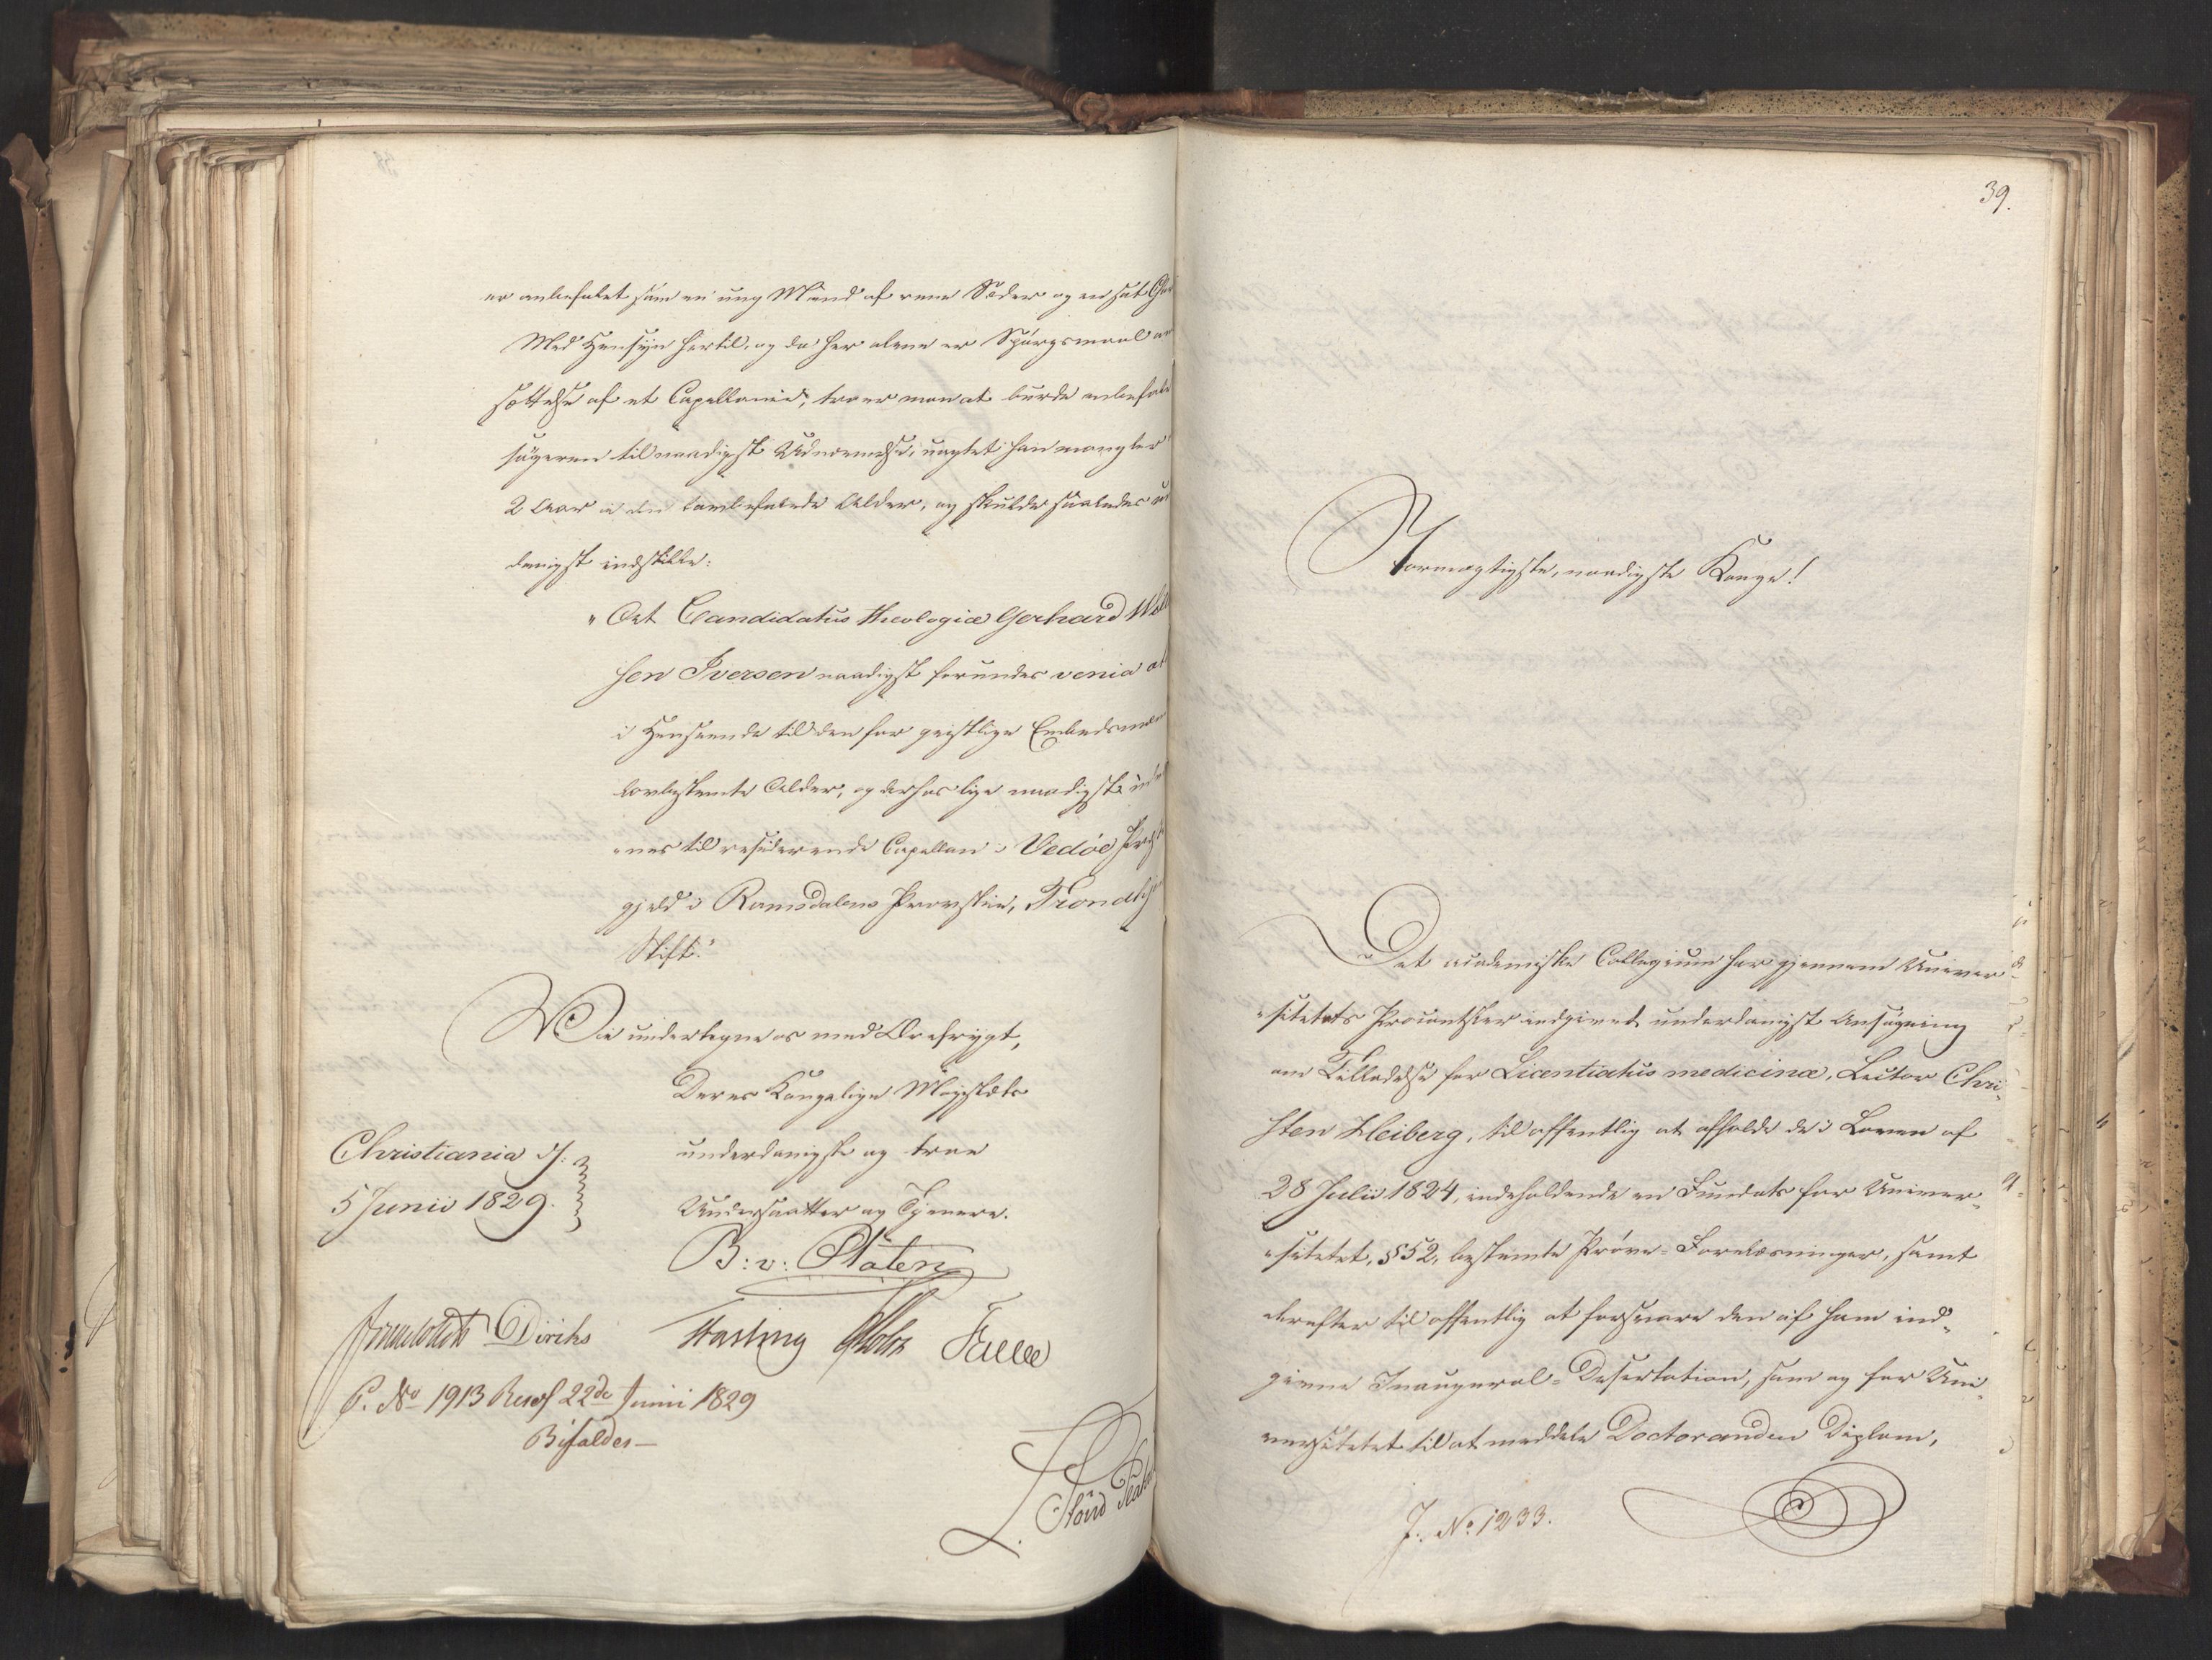 er anbefalet som en ung Mand af rene Sæder og en sat
Med Hensyn hertil, og da her alene er Spørgsmaal
sættelse af et Capellanie, troer man at burde anbefale
søgeren til naadigst Udnævnelse, uagtet han mangler
2 Aar i den lovbefalede Alder, og skulde saaledes
danigst indstille:
"At Candidatus theologiæ Gerhard
sen Iversen naadigst forundes venia
i Henseende til den for geistlige Embedsmæn
lovbestemte Alder, og derhos lige naadigst
nes til residerende Capellan i Vedøe
gjæld i Romsdalens Provstie, Trondhj
Stift."
Vi undertegne os med Ærefrygt,
Deres Kongelige Majestæts
underdanigste og troe
Undersaatter og Tjenere.
Christiania d.
5 Junii 1829.
B: v: Platen
Diriks Fasting Holst
P. No 1913 Resol 22de Junii 1829
Bifaldes—
39.
Stormægtigste, naadigste Konge!
Det academiske Collegium har gjennem Univer-
sitetets Procantsler indgivet underdanigst Ansøgning
om Tilladelse for Licentiatus medicinæ, Lector Chri-
sten Heiberg, til offentlig at afholde de i Loven af
28 Julii 1824, indeholdende en Fundats for Univer-
sitetet, §52, bestemte Prøve-Forelæsninger, samt
derefter til offentlig at forsvare den af ham ind-
givne Inaugural-Dissertation, som og for Uni-
versitetet til at meddele Doctoranden Diplom,
J. No 1233.